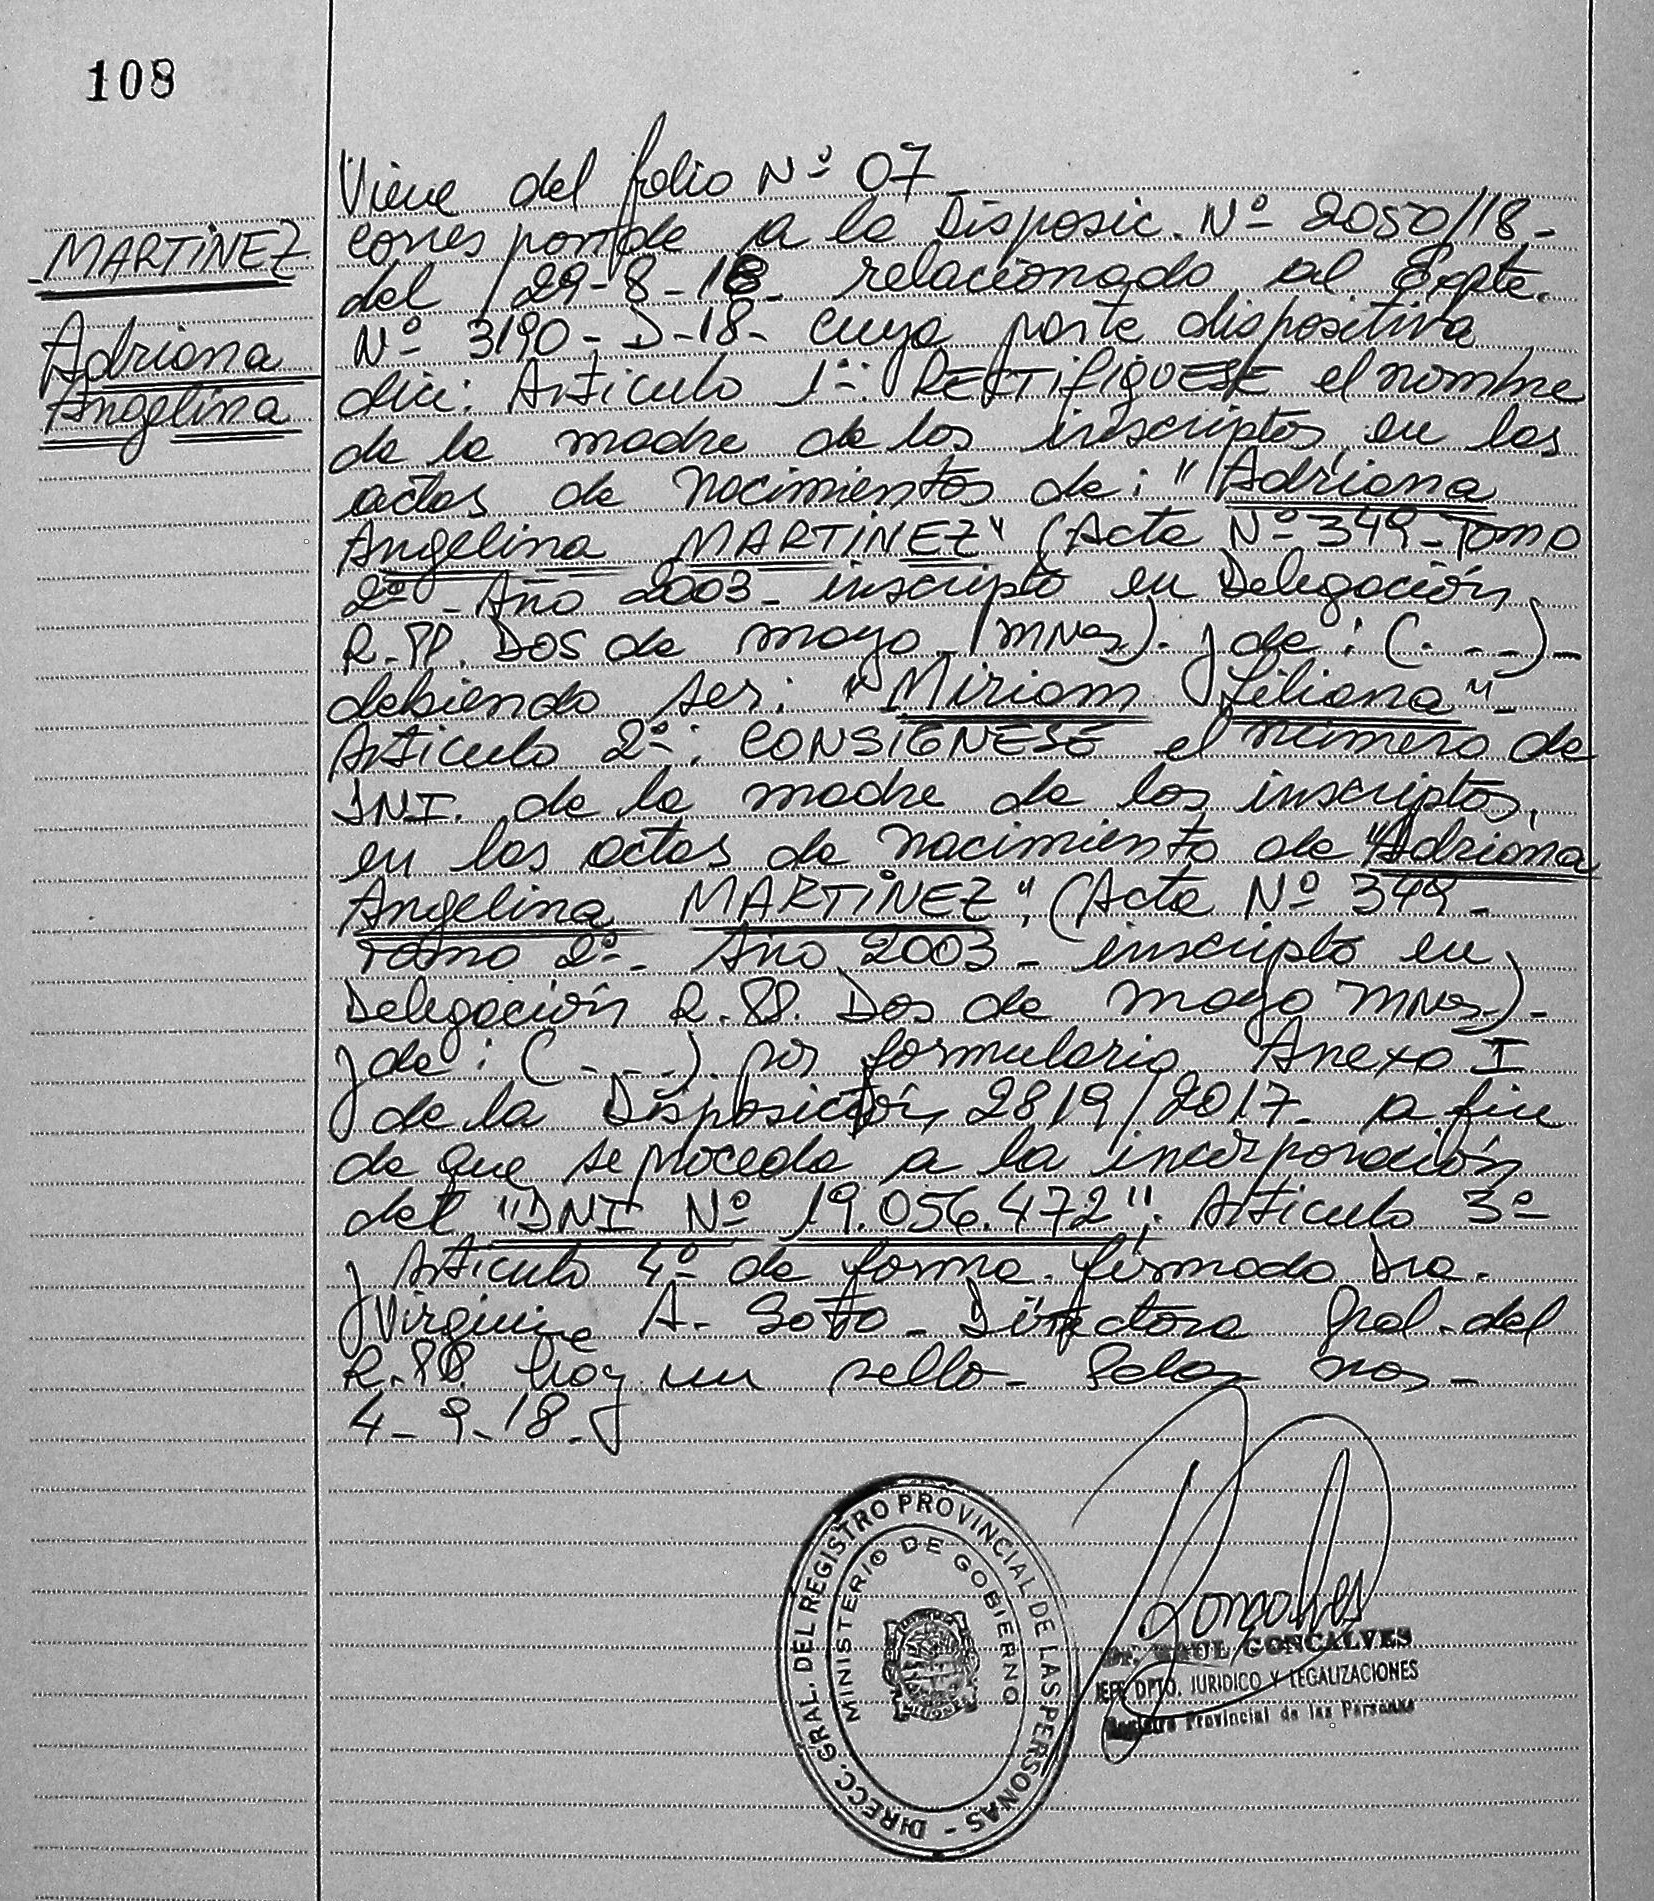 108
Viene del folio Nº 07
MARTINEZ
Adriana
Angelina
corresponde a la Disposic. Nº 2050/18-
del 29-8-18- relacionado al Expte.
Nº 3190-D-18- cuya parte dispositiva
dice: Artículo 1º: RECTIFIQUESE el nombre
de la madre de los inscriptos en las
actas de nacimientos de: "Adriana
Angelina MARTINEZ" (Acta Nº 349-Tomo
2º-Año 2003- inscripto en Delegación
R.PP. Dos de mayo Mnes). y de: (. - -)-
debiendo ser: "Miriam Liliana"-
Artículo 2º: CONSIGNESE el número de
DNI. de la madre de los inscriptos,
en las actas de nacimiento de "Adriana
Angelina MARTINEZ", (Acta Nº 349-
Tomo 2º- Año 2003- inscripto en
Delegación R.PP. Dos de mayo Mnes.)-
y de: (- - -). por formulario Anexo I
de la Disposición 2819/2017- a fin
de que se proceda a la incorporación
del "DNI Nº 19.056.472". Artículo 3º
y Artículo 4º de forma. firmado Dra.
Virginia A. Soto- Directora Gral.-del
R.PP. hay un sello-
4-9-18-
DIRECC. GRAL. DEL REGISTRO PROVINCIAL DE LAS PERSONAS -
MINISTERIO DE GOBIERNO
MISIONES
Dr. RAUL GONCALVES
JEFE DPTO. JURIDICO Y LEGALIZACIONES
Registro Provincial de las Personas